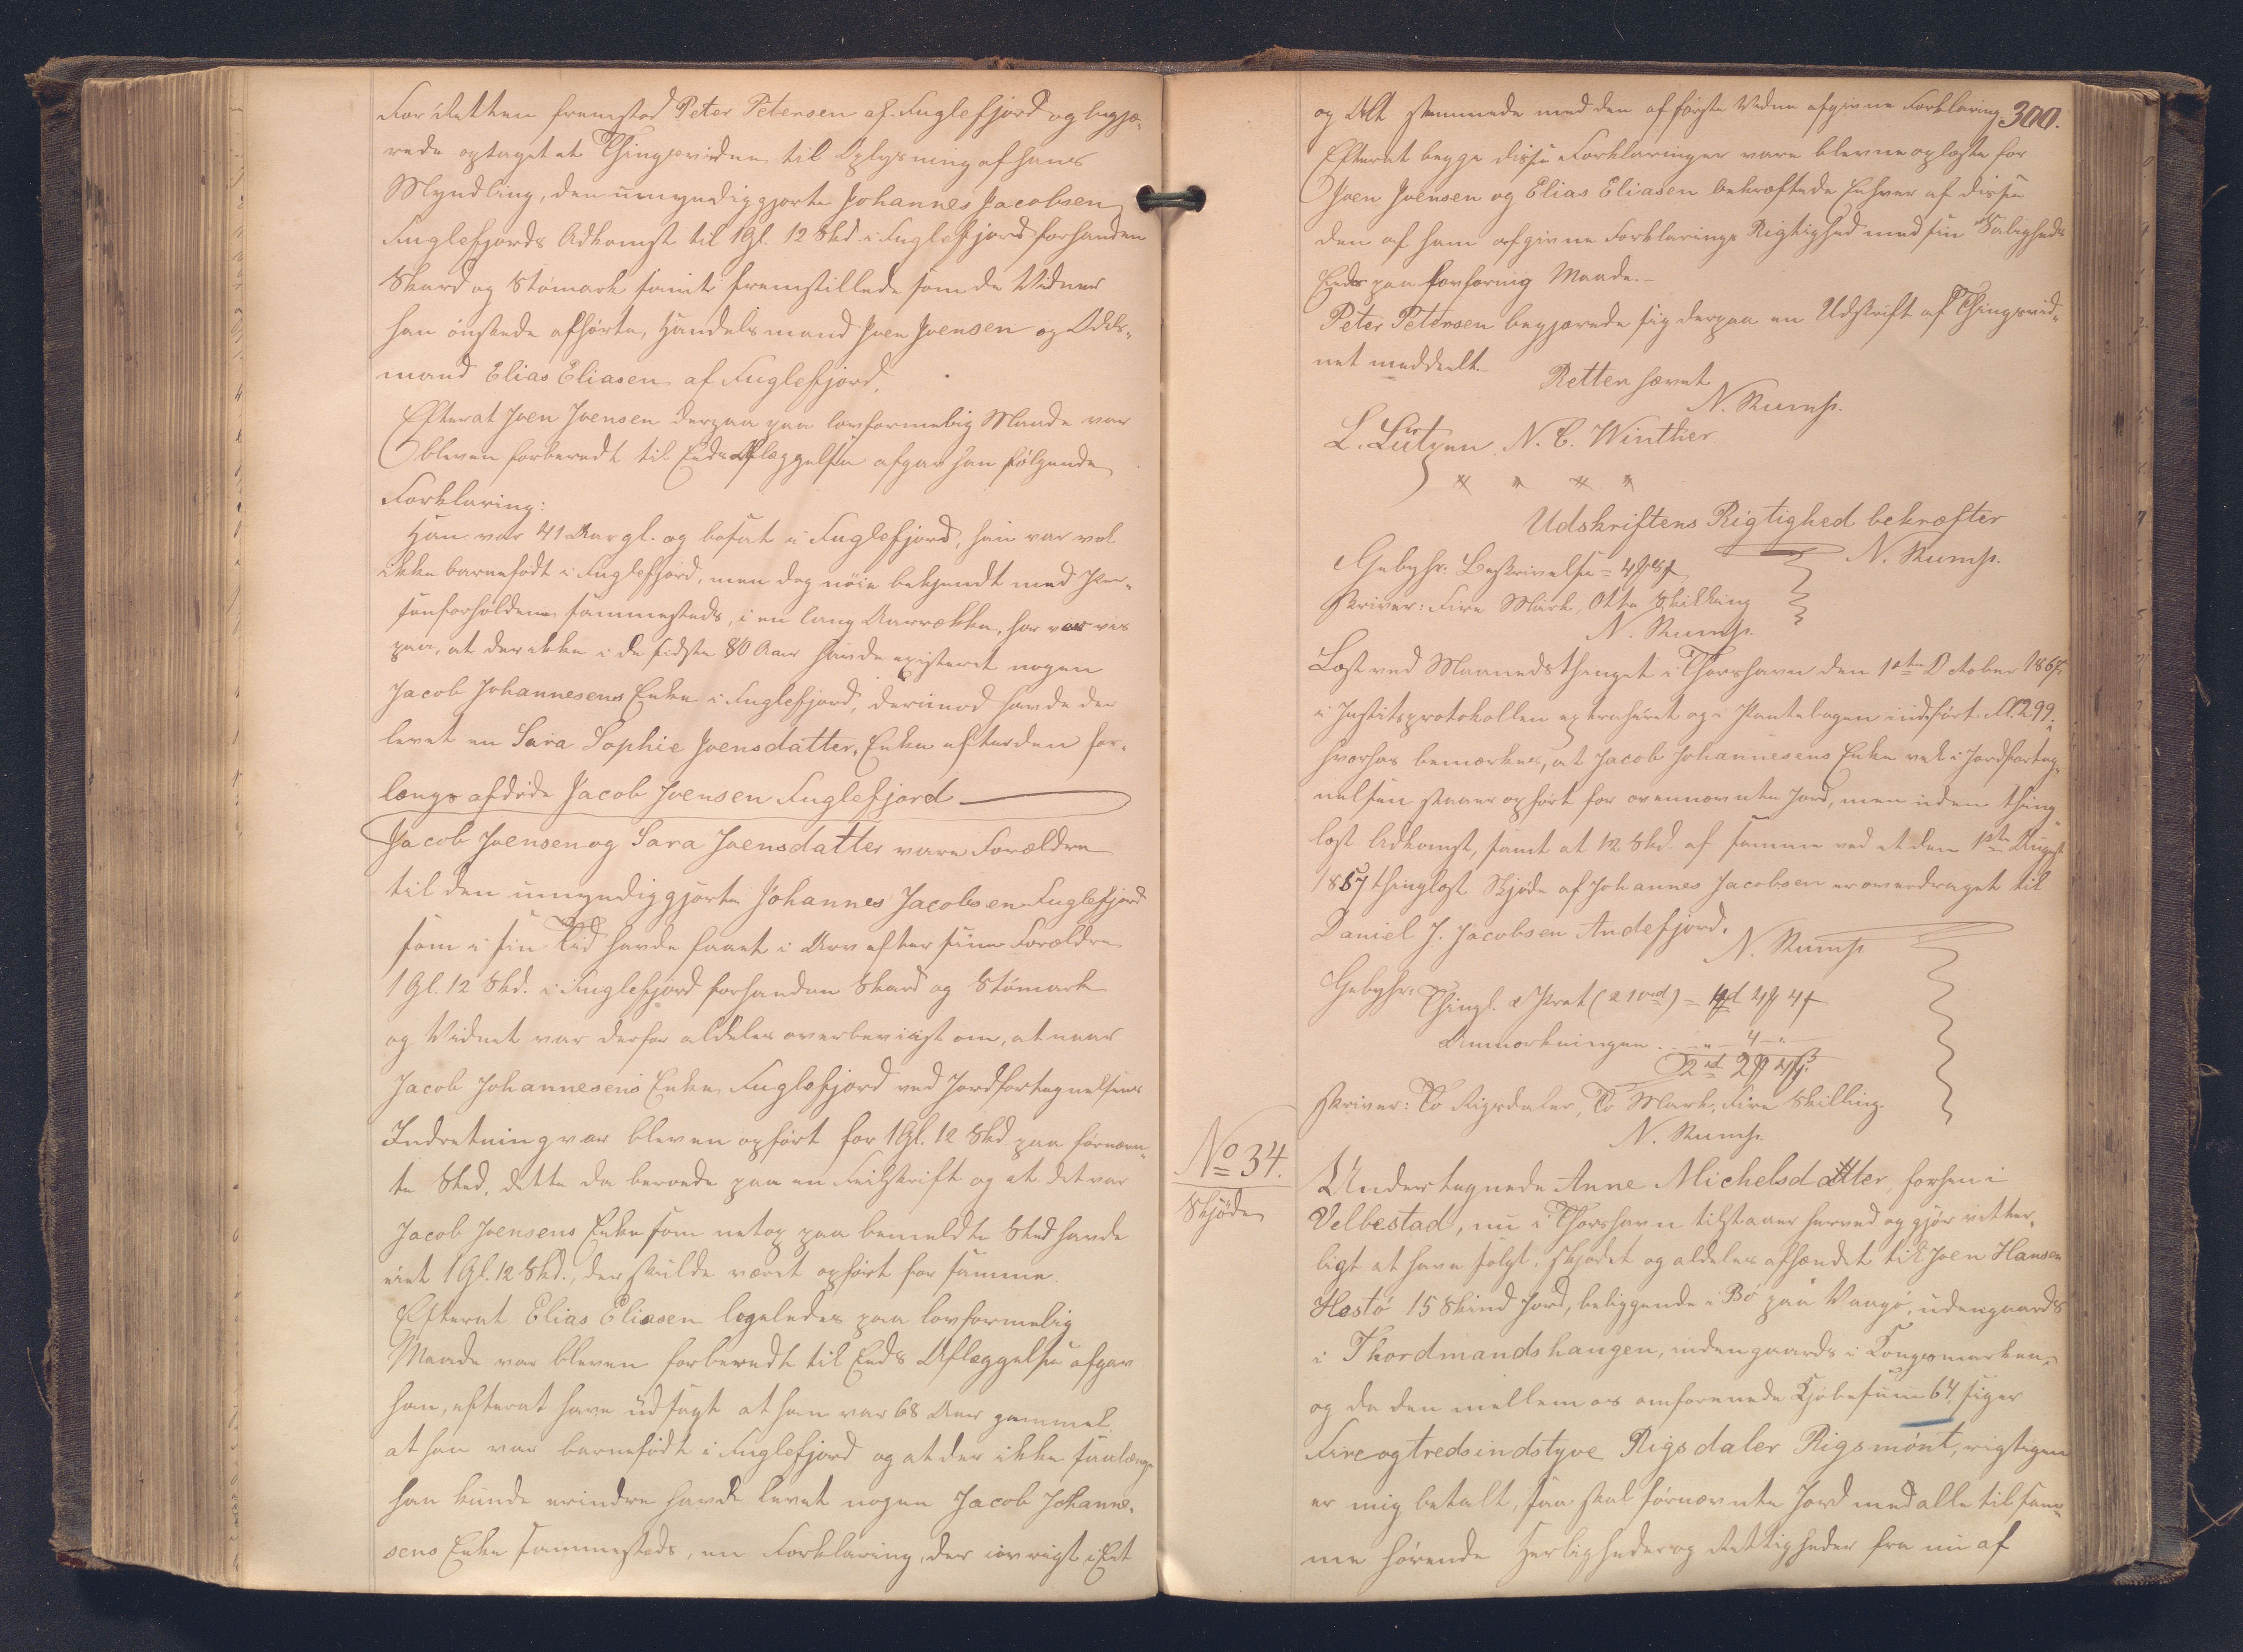 For Retten fremstod Peter Petersen af Fuglefjord og begjæ-
rede optaget et Thingsvidne til Oplysning af hans
Myndling, den umyndiggjorte Johannes Jacobsen
Fuglefjords Adkomst til 1 Gl. 12 Skd. i Fuglefjord forhanden
Skard og Stómark samt fremstillede som de Vidner
han ønskede afhørte, Handelsmand Joen Joensen og Odels-
mand Elias Eliasen af Fuglefjord.
Efterat Joen Joensen derpaa paa lovformelig Maade var
bleven forberedt til Eds Aflæggelse afgav han følgende
Forklaring:
Han var 41 Aar gl. og bosat i Fuglefjord, han var vel
ikke barnefødt i Fuglefjord, men dog nøie bekjendt med Per-
sonforholdene sammesteds, i en lang Aarrække, han var vis
paa, at der ikke i de sidste 80 Aar havde existeret nogen
Jacob Johannesens Enke i Fuglefjord, derimod havde der
levet en Sara Sophie Joensdatter, Enke efter den for-
længs afdøde Jacob Joensen Fuglefjord
Jacob Joensen og Sara Joensdatter vare Forældre
til den umyndiggjorte Johannes Jacobsen Fuglefjord
som i sin Tid havde faaet i Arv efter sine Forældre
1 Gl. 12 Skd. i Fuglefjord forhanden Skard og Stómark
og Vidnet var derfor aldeles overbeviist om, at naar
Jacob Johannesens Enke Fuglefjord ved Jordfortegnelsens
Indretning var bleven opført for 1 Gl. 12 Skd paa førnævn-
te Sted, dette da beroede paa en Feilskrift og at det var
Jacob Joensens Enke som netop paa bemeldte Sted havde
eiet 1 Gl. 12 Skd., der skulde været opført for samme.
Efterat Elias Eliasen ligeledes paa lovformelig
Maade var bleven forberedt til Eds Aflæggelse afgav
han, efterat have udsagt at han var 68 Aar gammel,
at han var barnefødt i Fuglefjord og at der ikke saalænge
han kunde erindre havde levet nogen Jacob Johanne-
sens Enke sammesteds, en Forklaring, der iøvrigt i Et
300.
og Alt stemmede med den af første Vidne afgivne Forklaring.
Efterat begge disse Forklaringer vare blevne oplæste for
Joen Joensen og Elias Eliasen bekræftede Enhver af disse
den af ham afgivne Forklarings Rigtighed med sin Saligheds
Eed paa lovformig Maade.-
Peter Petersen begjærede sig derpaa en Udskrift af Thingsvid-
net meddeelt.-
Retten hævet
N. Rump.
L. Lützen N. C. Winther
Udskriftens Rigtighed bekræfter
N. Rump.
Gebyhr: Beskrivelse = 4 8
skriver: Fire Mark, Otte Skilling
N. Rump.
Læst ved Maanedsthinget i Thorshavn den 1ste October 1867,
i Justitsprotokollen extraheret og i Pantebogen indført Fl. 299.
hvorhos bemærkes, at Jacob Johannesens Enke vel i Jordforteg-
nelsen staaer opført for ovennævnte Jord, men uden thing-
læst Adkomst, samt at 12 Skd. af samme ved et den 1ste August
1857 thinglæst Skjøde af Johannes Jacobsen er overdraget til
Daniel J. Jacobsen Andefjord.
N. Rump
Gebyhr: Thingl. & Prot (210 rd) = 4
Anmærkningen . - " - 4 - "
2 rd 2 4
skriver: To Rigsdaler, To Mark, Fire Skilling.
N. Rump.
No 34.
Skjøde
Undertegnede Anne Michelsdatter, forhen i
Velbestad, nu i Thorshavn tilstaaer herved og gjør vitter-
ligt at have solgt, skjødet og aldeles afhændet til Joen Hansen
Hestø 15 Skind Jord, beliggende i Bø paa Vaagø, udengaards
i Thordmandshaugen, indengaards i Kongsmarken,
og da den mellem os omforenede Kjøbesum 64, siger
Fire og tredsindstyve Rigsdaler Rigsmønt, rigtigen
er mig betalt, saa skal førnævnte Jord med alle til sam-
me hørende Herligheder og Rettigheder fra nu af